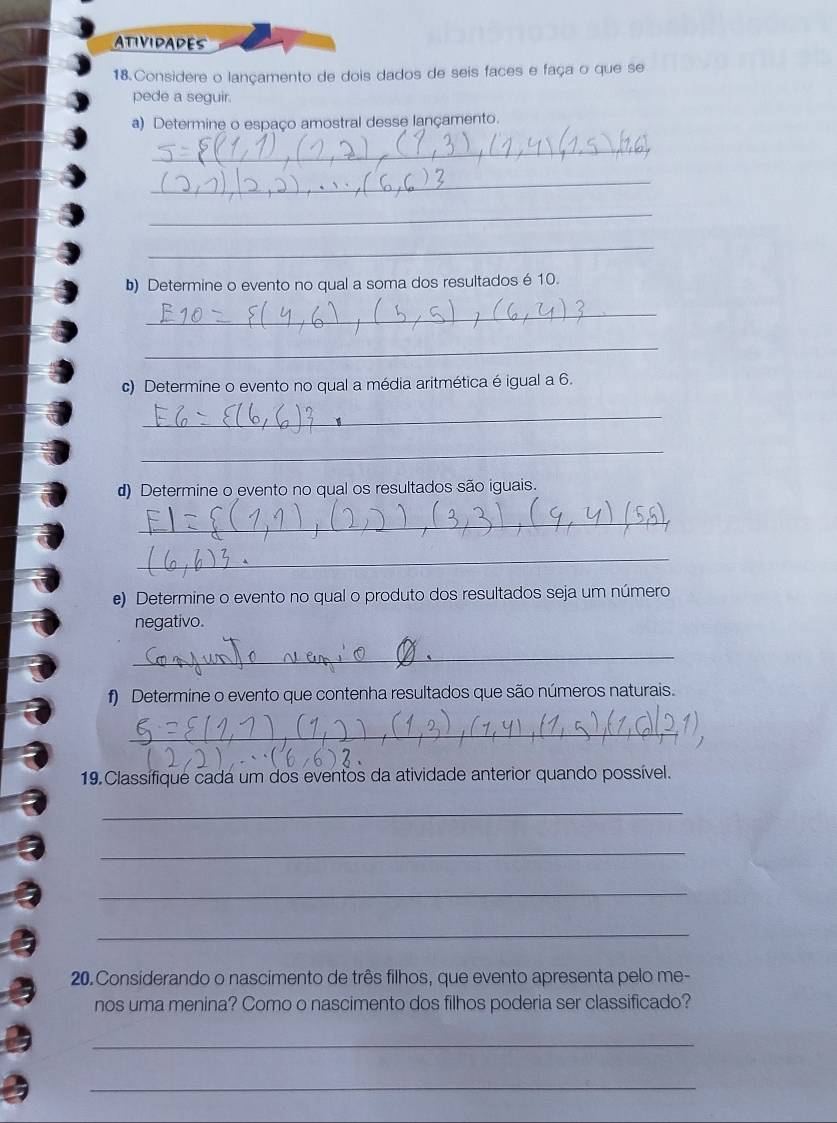 ATIVIDADES
18. Considere o lançamento de dois dados de seis faces e faça o que se
pede a seguir.
a) Determine o espaço amostral desse lançamento.
S={(1,1),(1,2),(1,3),(1,4)(1,5)(1,6),
(2,1),(2,2),...,(6,6)}
b) Determine o evento no qual a soma dos resultados é 10.
E10={(4,6),(5,5),(6,4)}.
c) Determine o evento no qual a média aritmética é igual a 6.
E6={(6,6)}.
d) Determine o evento no qual os resultados são iguais.
EI={(1,1),(2,2),(3,3),(4,4)(5,5),
(6,6)}.
e) Determine o evento no qual o produto dos resultados seja um número
negativo.
Conjunto vazio Ø.
f) Determine o evento que contenha resultados que são números naturais.
S={(1,1),(1,2),(1,3),(1,4),(1,5),(1,6)(2,1),
(2,2),...(6,6)}.
19. Classifique cada um dos eventos da atividade anterior quando possível.
20. Considerando o nascimento de três filhos, que evento apresenta pelo me-
nos uma menina? Como o nascimento dos filhos poderia ser classificado?